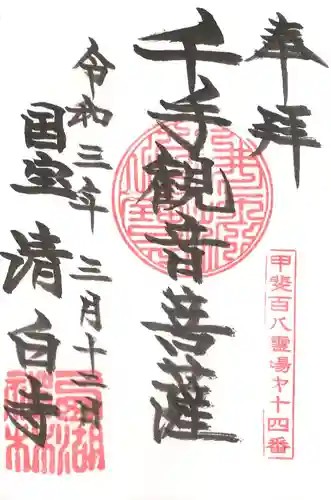 奉拝
甲斐百八霊場第十四番
千手観音菩薩
令和三年三月十二日
国宝 清白寺